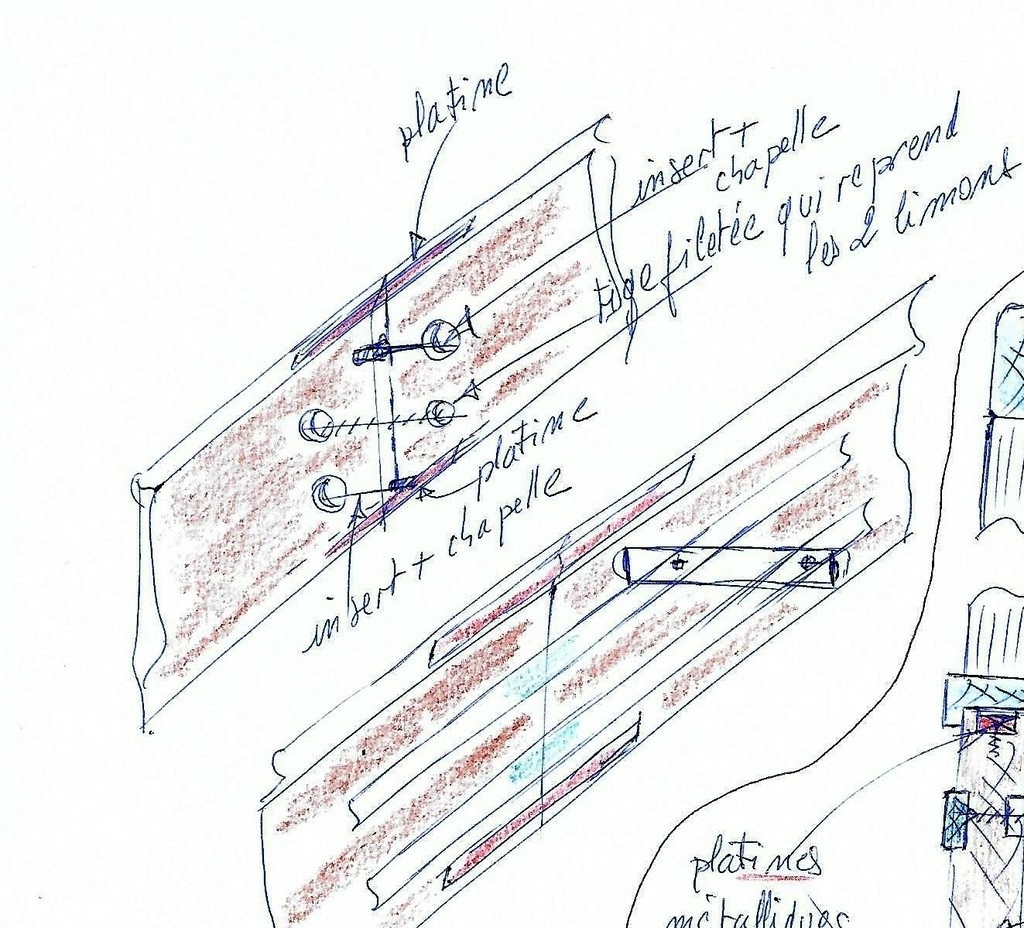 platine
insert +
chapelle
tige filetée qui reprend
les 2 limons
platine
insert + chapelle
platines
métalliques